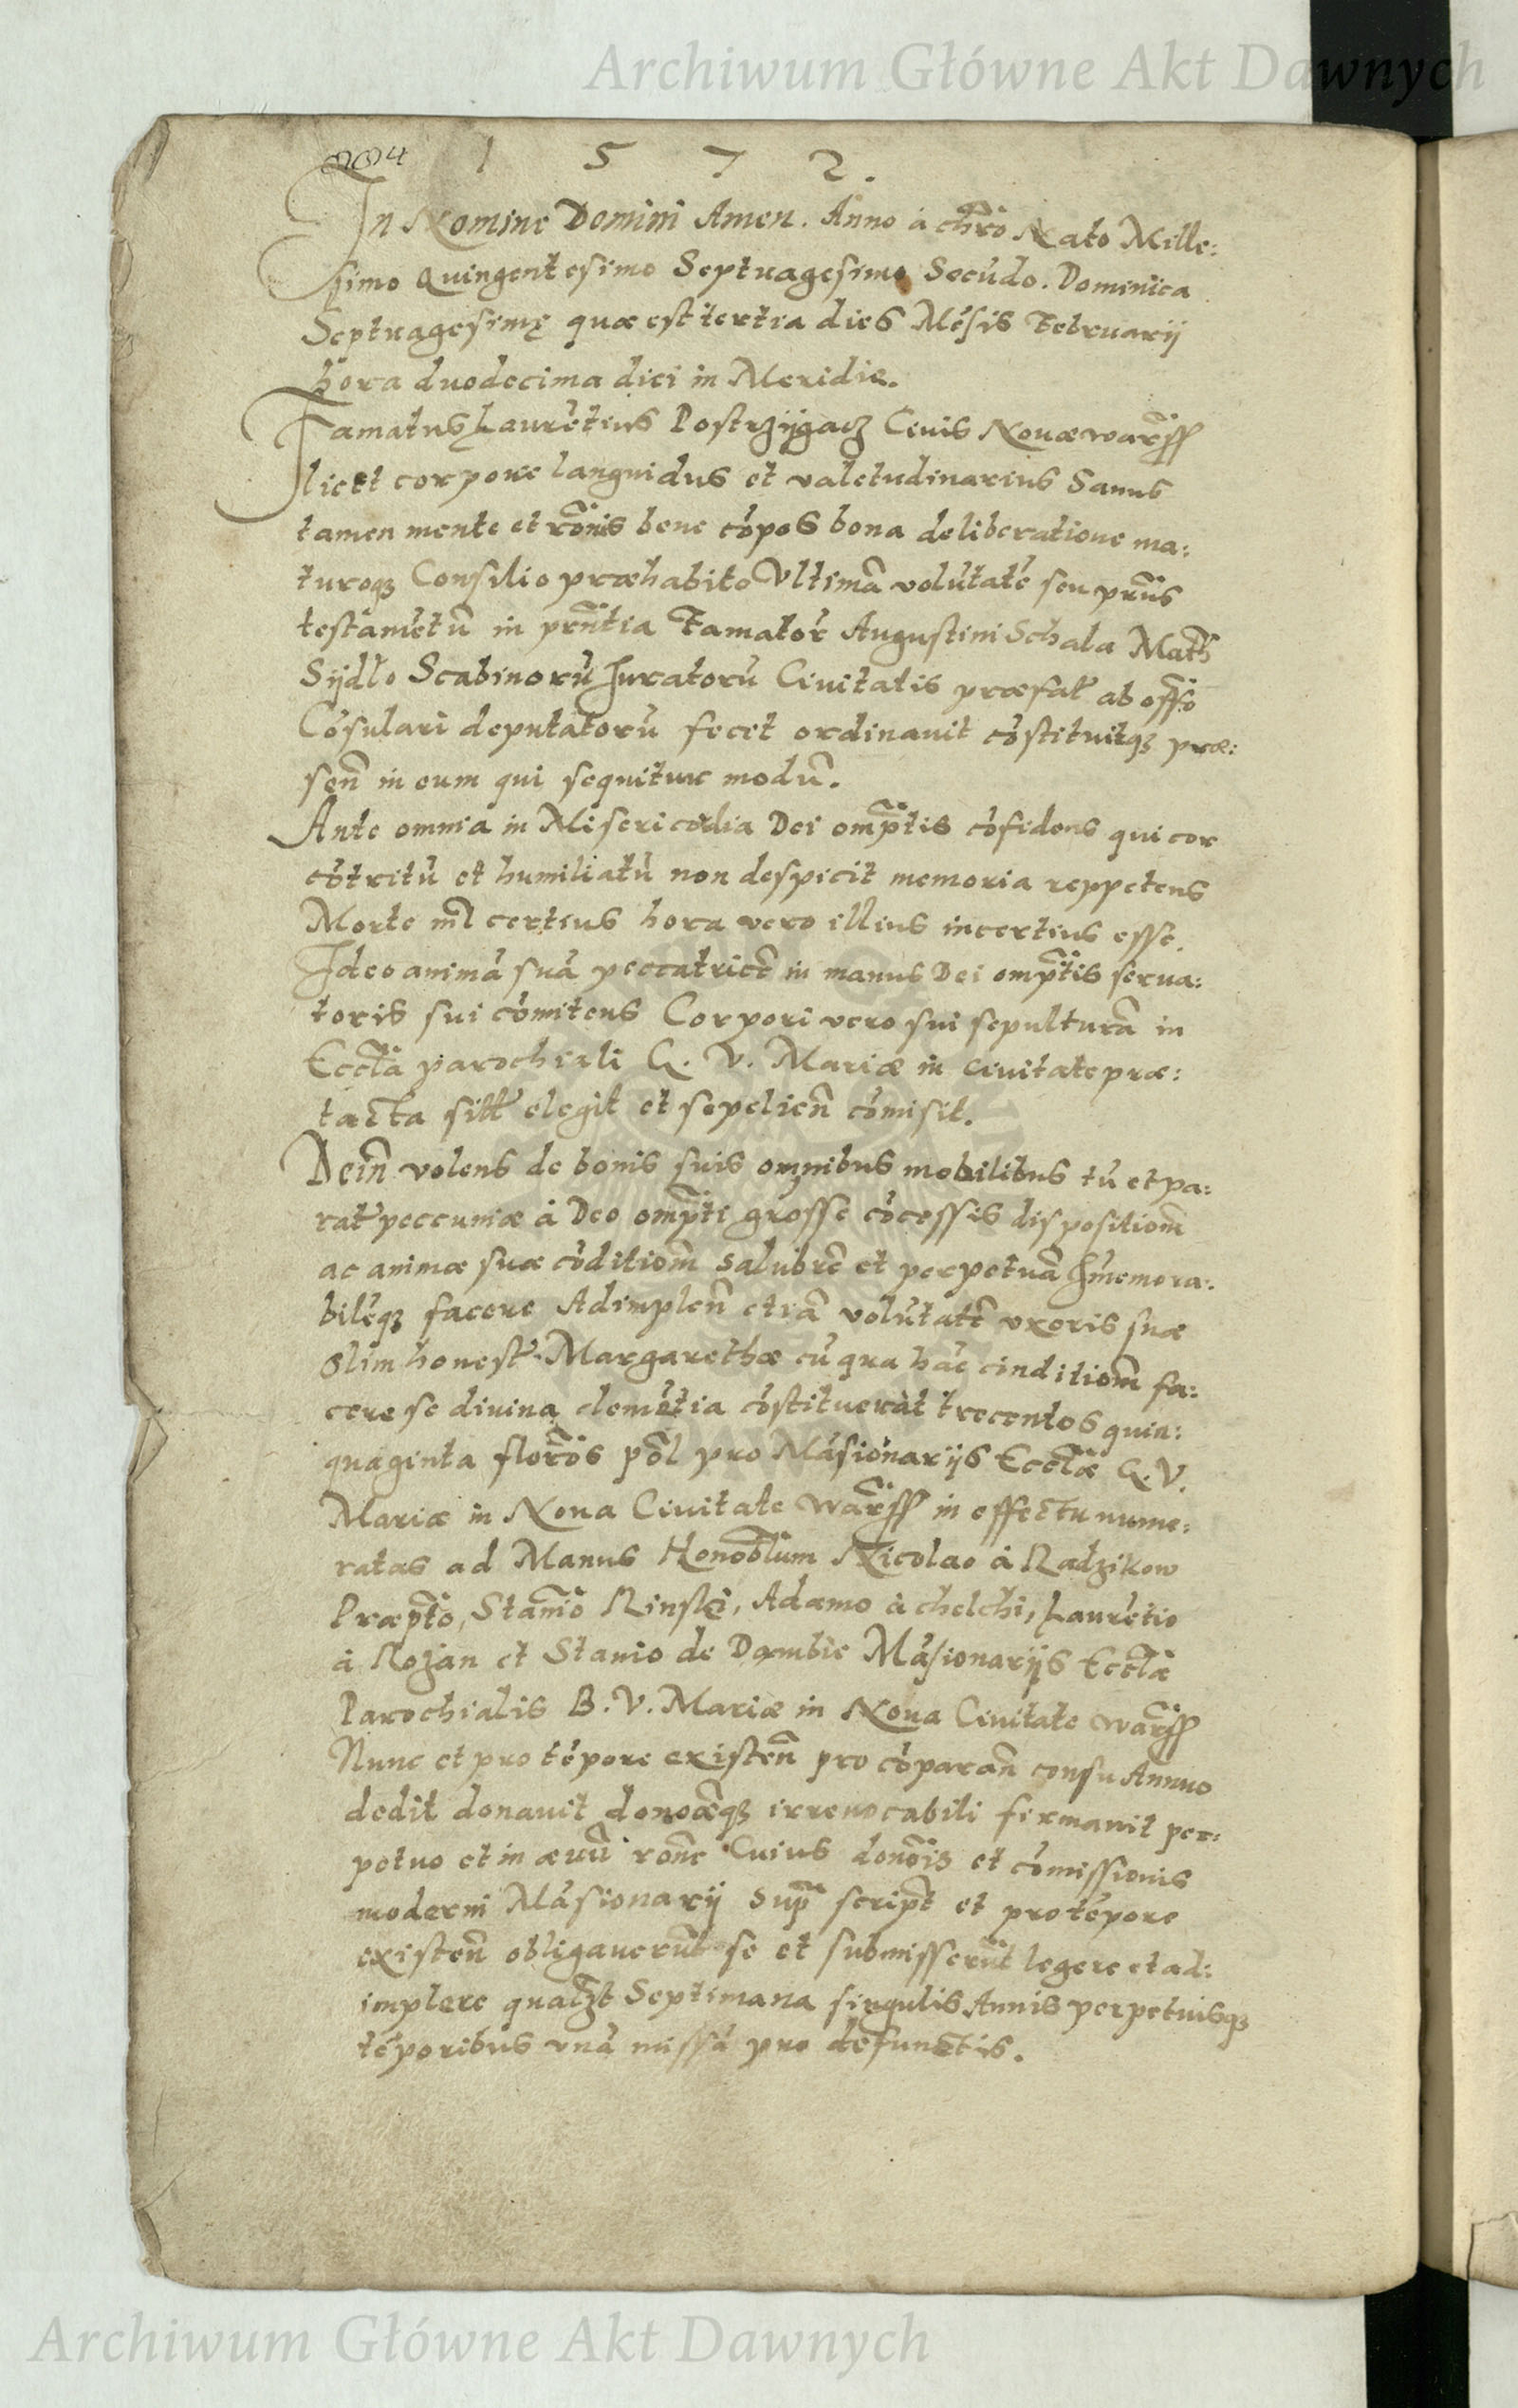 Archiwum Główne Akt Dawnych
1 5 7 2.
In Nomine Domini Amen. Anno à chro Nato Mille:
simo Quingentesimo Septuagesimo Secūdo. Dominica
Septuagesimę quæ est tertia dies Mēsis Februarij
hora duodecima diei in Meridie.
Famatus Laurētius Postrzÿgacz Ciuis Nouæ warss
licet corpore languidus et valetudinarius Sanus
tamen mente et rōnis bene cōpos bona deliberatione ma:
turoqz Consilio præhabito Vltimā volūtatē seu prñs
testamētū in prñtia Famator Augustini Schala Math
Sÿdlo Scabinorū Juratorū Ciuitatis præfat ab offo
Cōsulari deputatorū fecit ordinauit cōstituitqz præ:
sen̄ in eum qui sequitur modū.
Ante omnia in Misericordia Dei omptis cōfidens qui cor
cōtritū et humiliatū non despicit memoria reppetens
Morte nil certius hora vero illius incertius esse.
Ideo animā suā peccatricē in manus Dei omptis serua:
toris sui cōmitens Corpori vero sui sepulturā in
Eccła parochiali G. V. Mariæ in ciuitate præ:
tacta sitt elegit et sepelien̄ cōmisit.
Dein̄ volens de bonis suis omnibus mobilibus tū et pa:
rat peccuniæ à Deo ompti grosse cōcessis dispositiom̄
ac animæ suæ cōditiom̄ salubrē et perpetuā Jmemora:
bilēqz facere Adimplen̄ etiā volūtatē vxoris suæ
olim honest Margarethæ cū qua hāc cinditiom̄ fa:
cere se diuina clemētia cōstituerāt trecentos quin:
quaginta flōros pōl pro Māsionarijs Ecclæ G. V.
Mariæ in Noua Ciuitate warss in effectu nume:
ratas ad Manus Honoblum Nicolao à Radzikow
Præpto, Stanio Rinski, Adamo à chelchi, Laurētio
à Rozan et Stanio de Dambie Māsionarijs Ecclæ
Parochialis B. V. Mariæ in Noua Ciuitate warss
Nunc et pro tēpore existen̄ pro cōparan̄ censu Annuo
dedit donauit donoēqz irreuocabili firmauit per:
petuo et in æuū ronē Cuius donōis et cōmissionis
moderni Māsionarij sup̄ script et pro tēpore
existen̄ obligauerūt se et submisserūt legere et ad:
implere qualzt Septimana singulis Annis perpetuisqz
tēporibus vnā missā pro defunctis.
Archiwum Główne Akt Dawnych